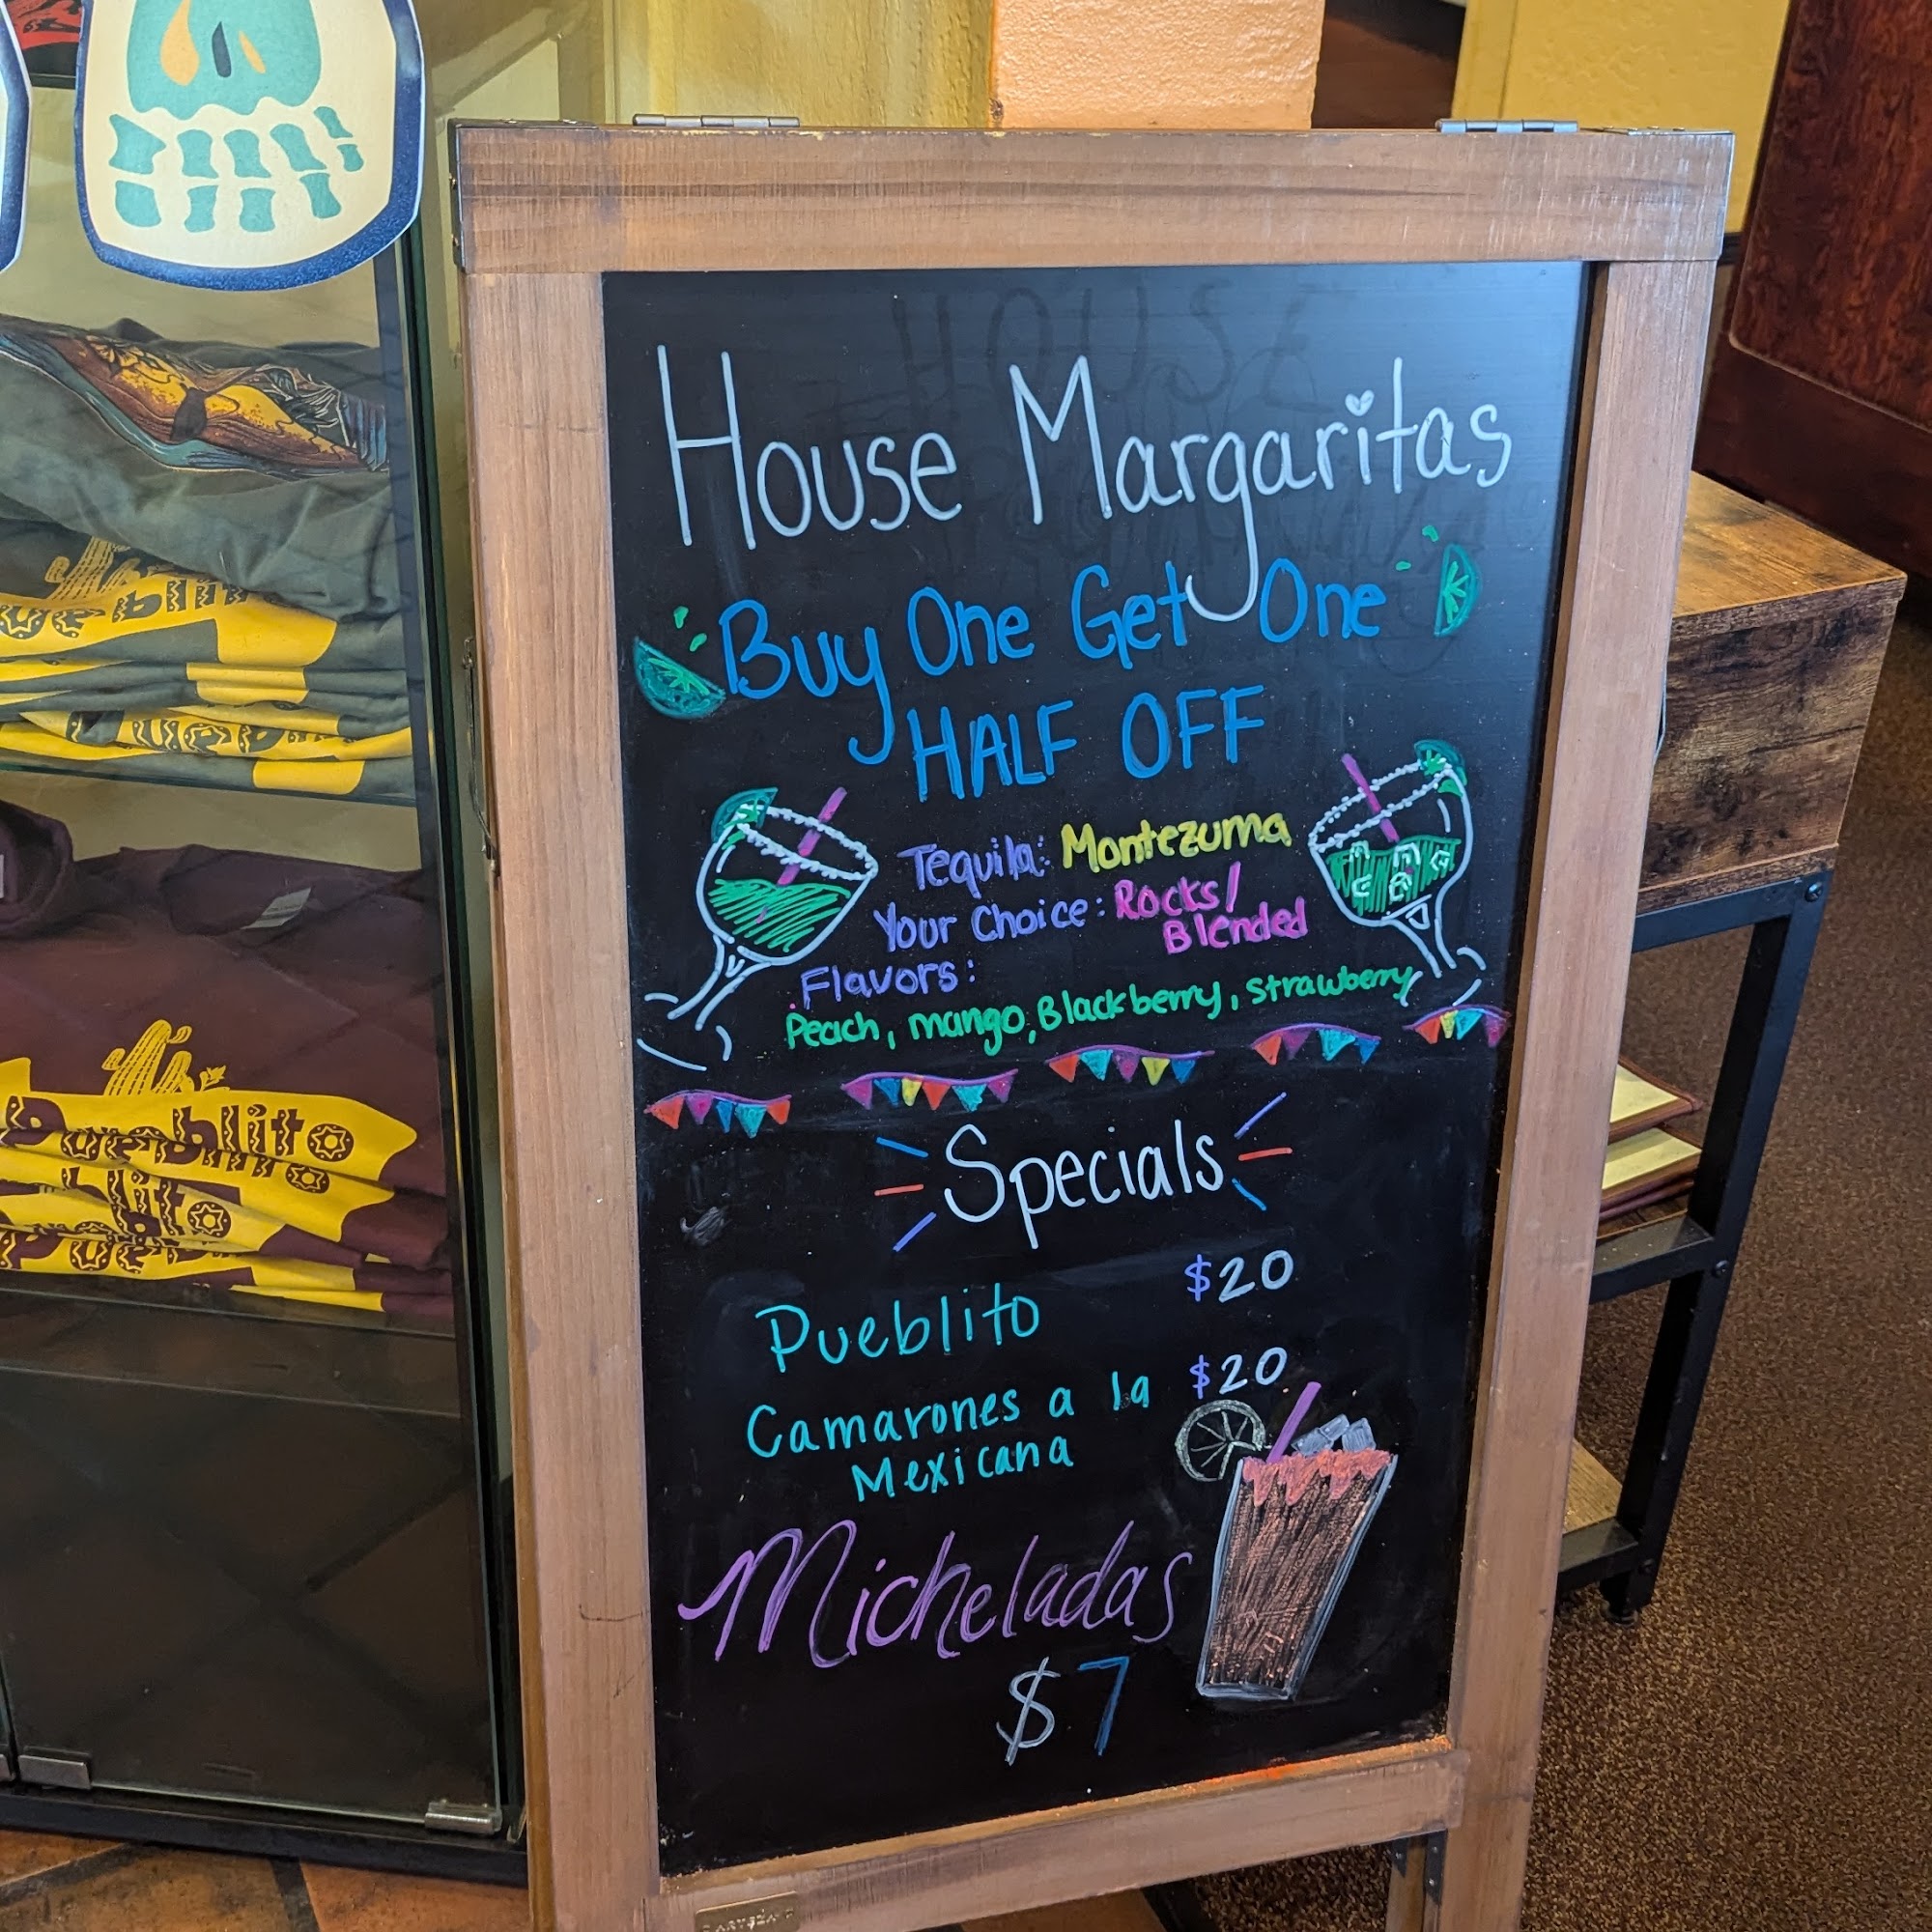 House Margaritas
Buy One Get One
HALF OFF
Tequila: Montezuma
Your Choice: Rocks/
Blended
Flavors:
Peach, mango, Blackberry, strawberry
Specials
Pueblito $20
Camarones a la $20
Mexicana
Micheladas
$7
HOUSE
Pueblito
blito